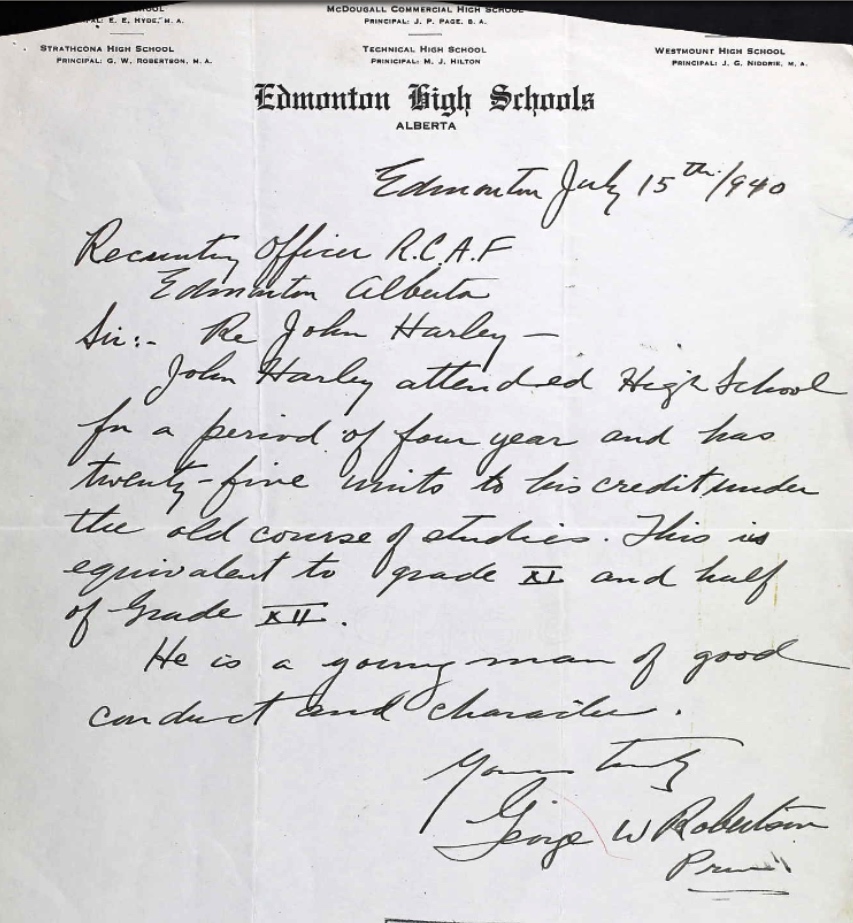 OOL
AL: E. E. HYDE, M. A.
MCDOUGALL COMMERCIAL HIGH SCHOOL
PRINCIPAL: J. P. PAGE, B. A.
STRATHCONA HIGH SCHOOL
PRINCIPAL: G. W. ROBERTSON, M. A.
TECHNICAL HIGH SCHOOL
PRINICIPAL: M. J. HILTON
WESTMOUNT HIGH SCHOOL
PRINCIPAL: J. G. NIDDRIE, M. A.
Edmonton High Schools
ALBERTA
Edmonton July 15th/940
Recruiting Officer R.C.A.F
Edmonton Alberta
Sir:- Re John Harley -
John Harley attended High School
for a period of four year and has
twenty-five units to his credit under
the old course of studies. This is
equivalent to grade XI and half
of Grade XII.
He is a young man of good
conduct and character.
Yours truly
George W Robertson
Prin